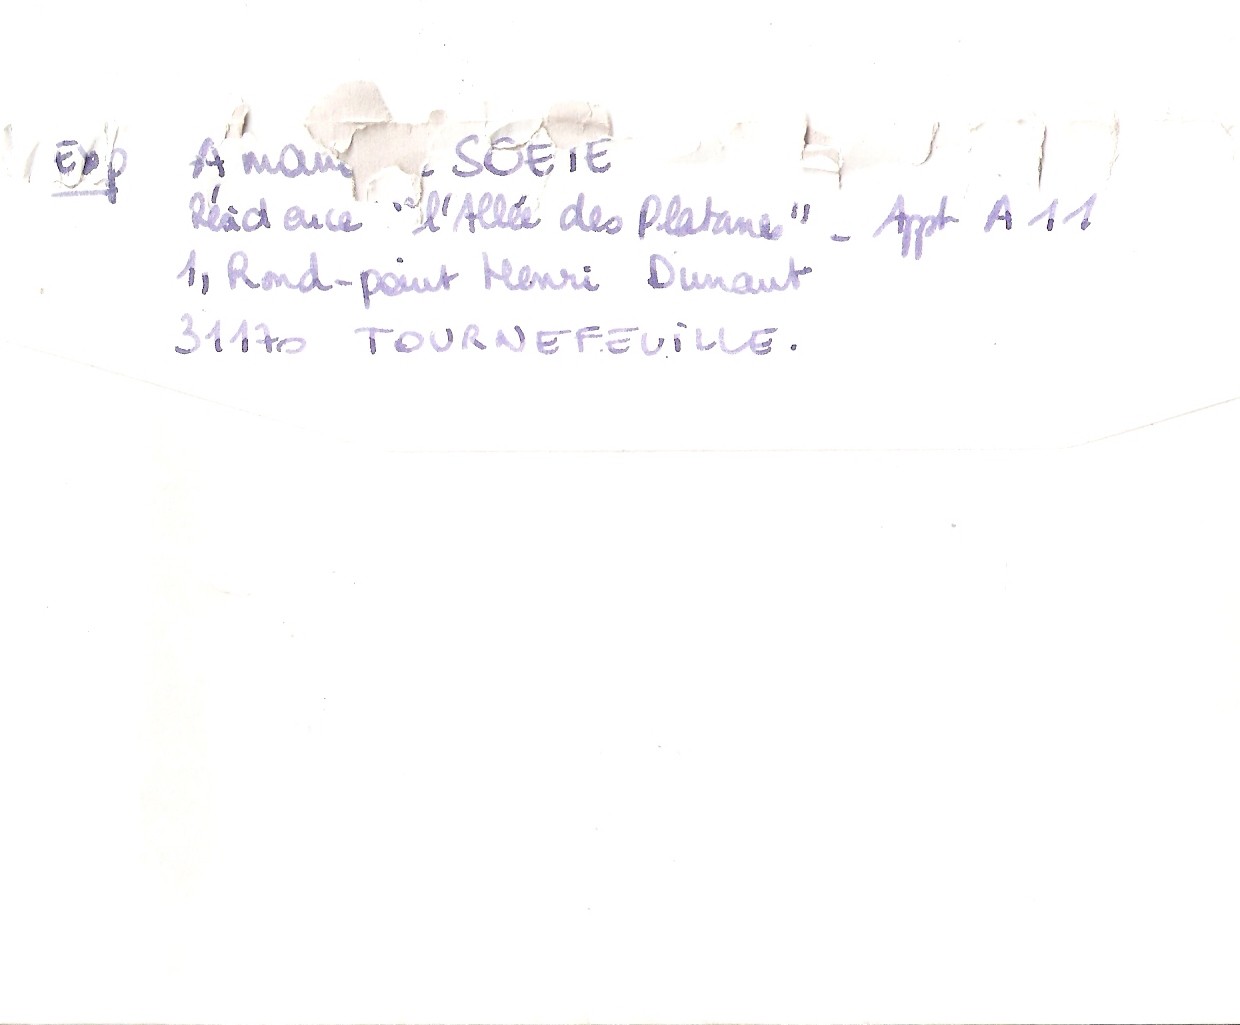 Exp SOETE
Résidence "l'Allée des Platanes" - Appt A 11
1, Rond-point Henri Dunant
31170 TOURNEFEUILLE.